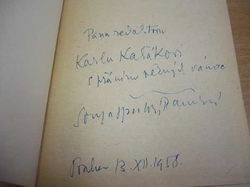 Panu redaktoru
Karlu Kašákovi
s přáním pěkných vánoc
Praha 13.XII.1958.